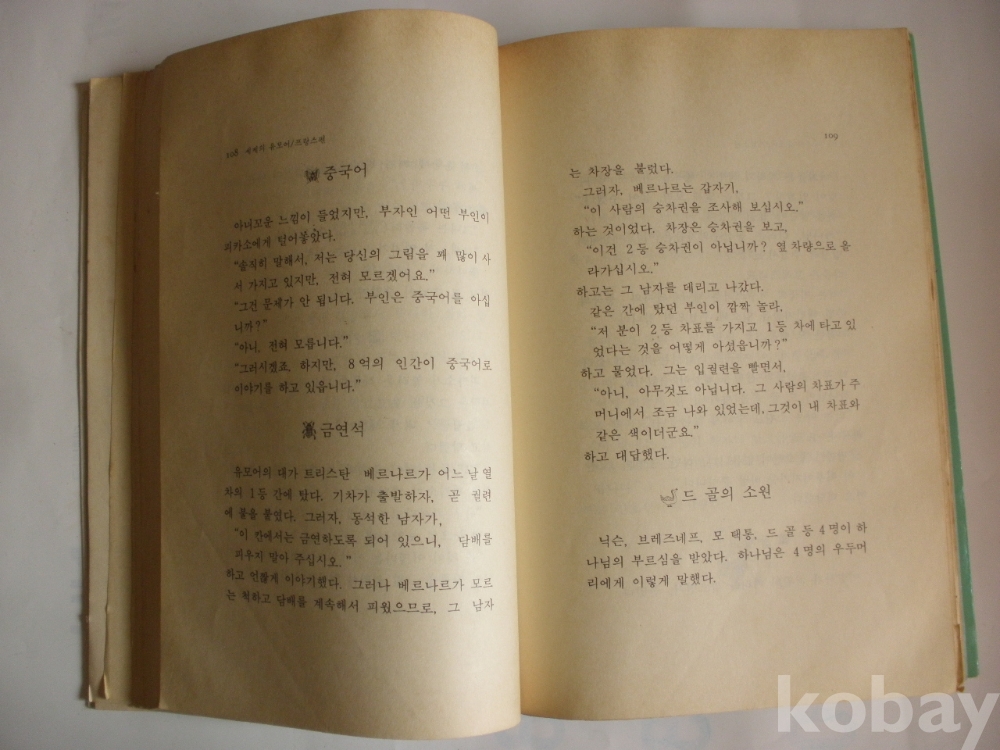 108 세계의 유모어/프랑스편
중국어
아녀모운 느낌이 들었지만, 부자인 어떤 부인이
피카소에게 털어놓았다.
"솔직히 말해서, 저는 당신의 그림을 꽤 많이 사
서 가지고 있지만, 전혀 모르겠어요."
"그건 문제가 안 됩니다. 부인은 중국어를 아십
니까?"
"아니, 전혀 모릅니다."
"그러시겠죠. 하지만, 8억의 인간이 중국어로
이야기를 하고 있읍니다."
금연석
유모어의 대가 트리스탄 베르나르가 어느 날 열
차의 1등 간에 탔다. 기차가 출발하자, 곧 궐련
에 불을 붙였다. 그러자, 동석한 남자가,
"이 칸에서는 금연하도록 되어 있으니, 담배를
피우지 말아 주십시오."
하고 언짢게 이야기했다. 그러나 베르나르가 모르
는 척하고 담배를 계속해서 피웠으므로, 그 남자
109
는 차장을 불렀다.
그러자, 베르나르는 갑자기,
"이 사람의 승차권을 조사해 보십시오."
하는 것이었다. 차장은 승차권을 보고,
"이건 2등 승차권이 아닙니까? 옆 차량으로 올
라가십시오."
하고는 그 남자를 데리고 나갔다.
같은 간에 탔던 부인이 깜짝 놀라,
"저 분이 2등 차표를 가지고 1등 차에 타고 있
었다는 것을 어떻게 아셨읍니까?"
하고 물었다. 그는 입궐련을 빨면서,
"아니, 아무것도 아닙니다. 그 사람의 차표가 주
머니에서 조금 나와 있었는데, 그것이 내 차표와
같은 색이더군요."
하고 대답했다.
드 골의 소원
닉슨, 브레즈네프, 모 택통, 드 골 등 4명이 하
나님의 부르심을 받았다. 하나님은 4명의 우두머
리에게 이렇게 말했다.
kobay